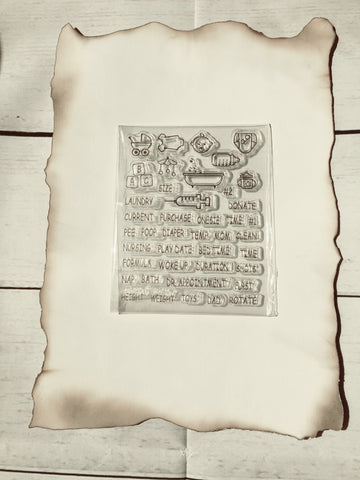 SIZE #2
LAUNDRY DONATE
CURRENT PURCHASE ONESIE TIME #1
PEE POOP DIAPER TEMP MOM CLEAN
NURSING PLAY DATE BEDTIME TIME
FORMULA WOKE UP DURATION SHOTS
NAP BATH DR APPOINTMENT
HEIGHT WEIGHT TOYS DAD ROTATE